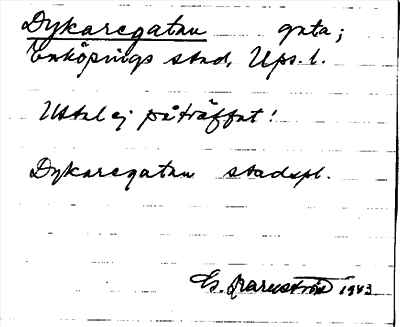 Dykaregatan gata;
Enköpings stad, Ups. l.
Uttal ej påträffat!
Dykaregatan stadspl.
1943